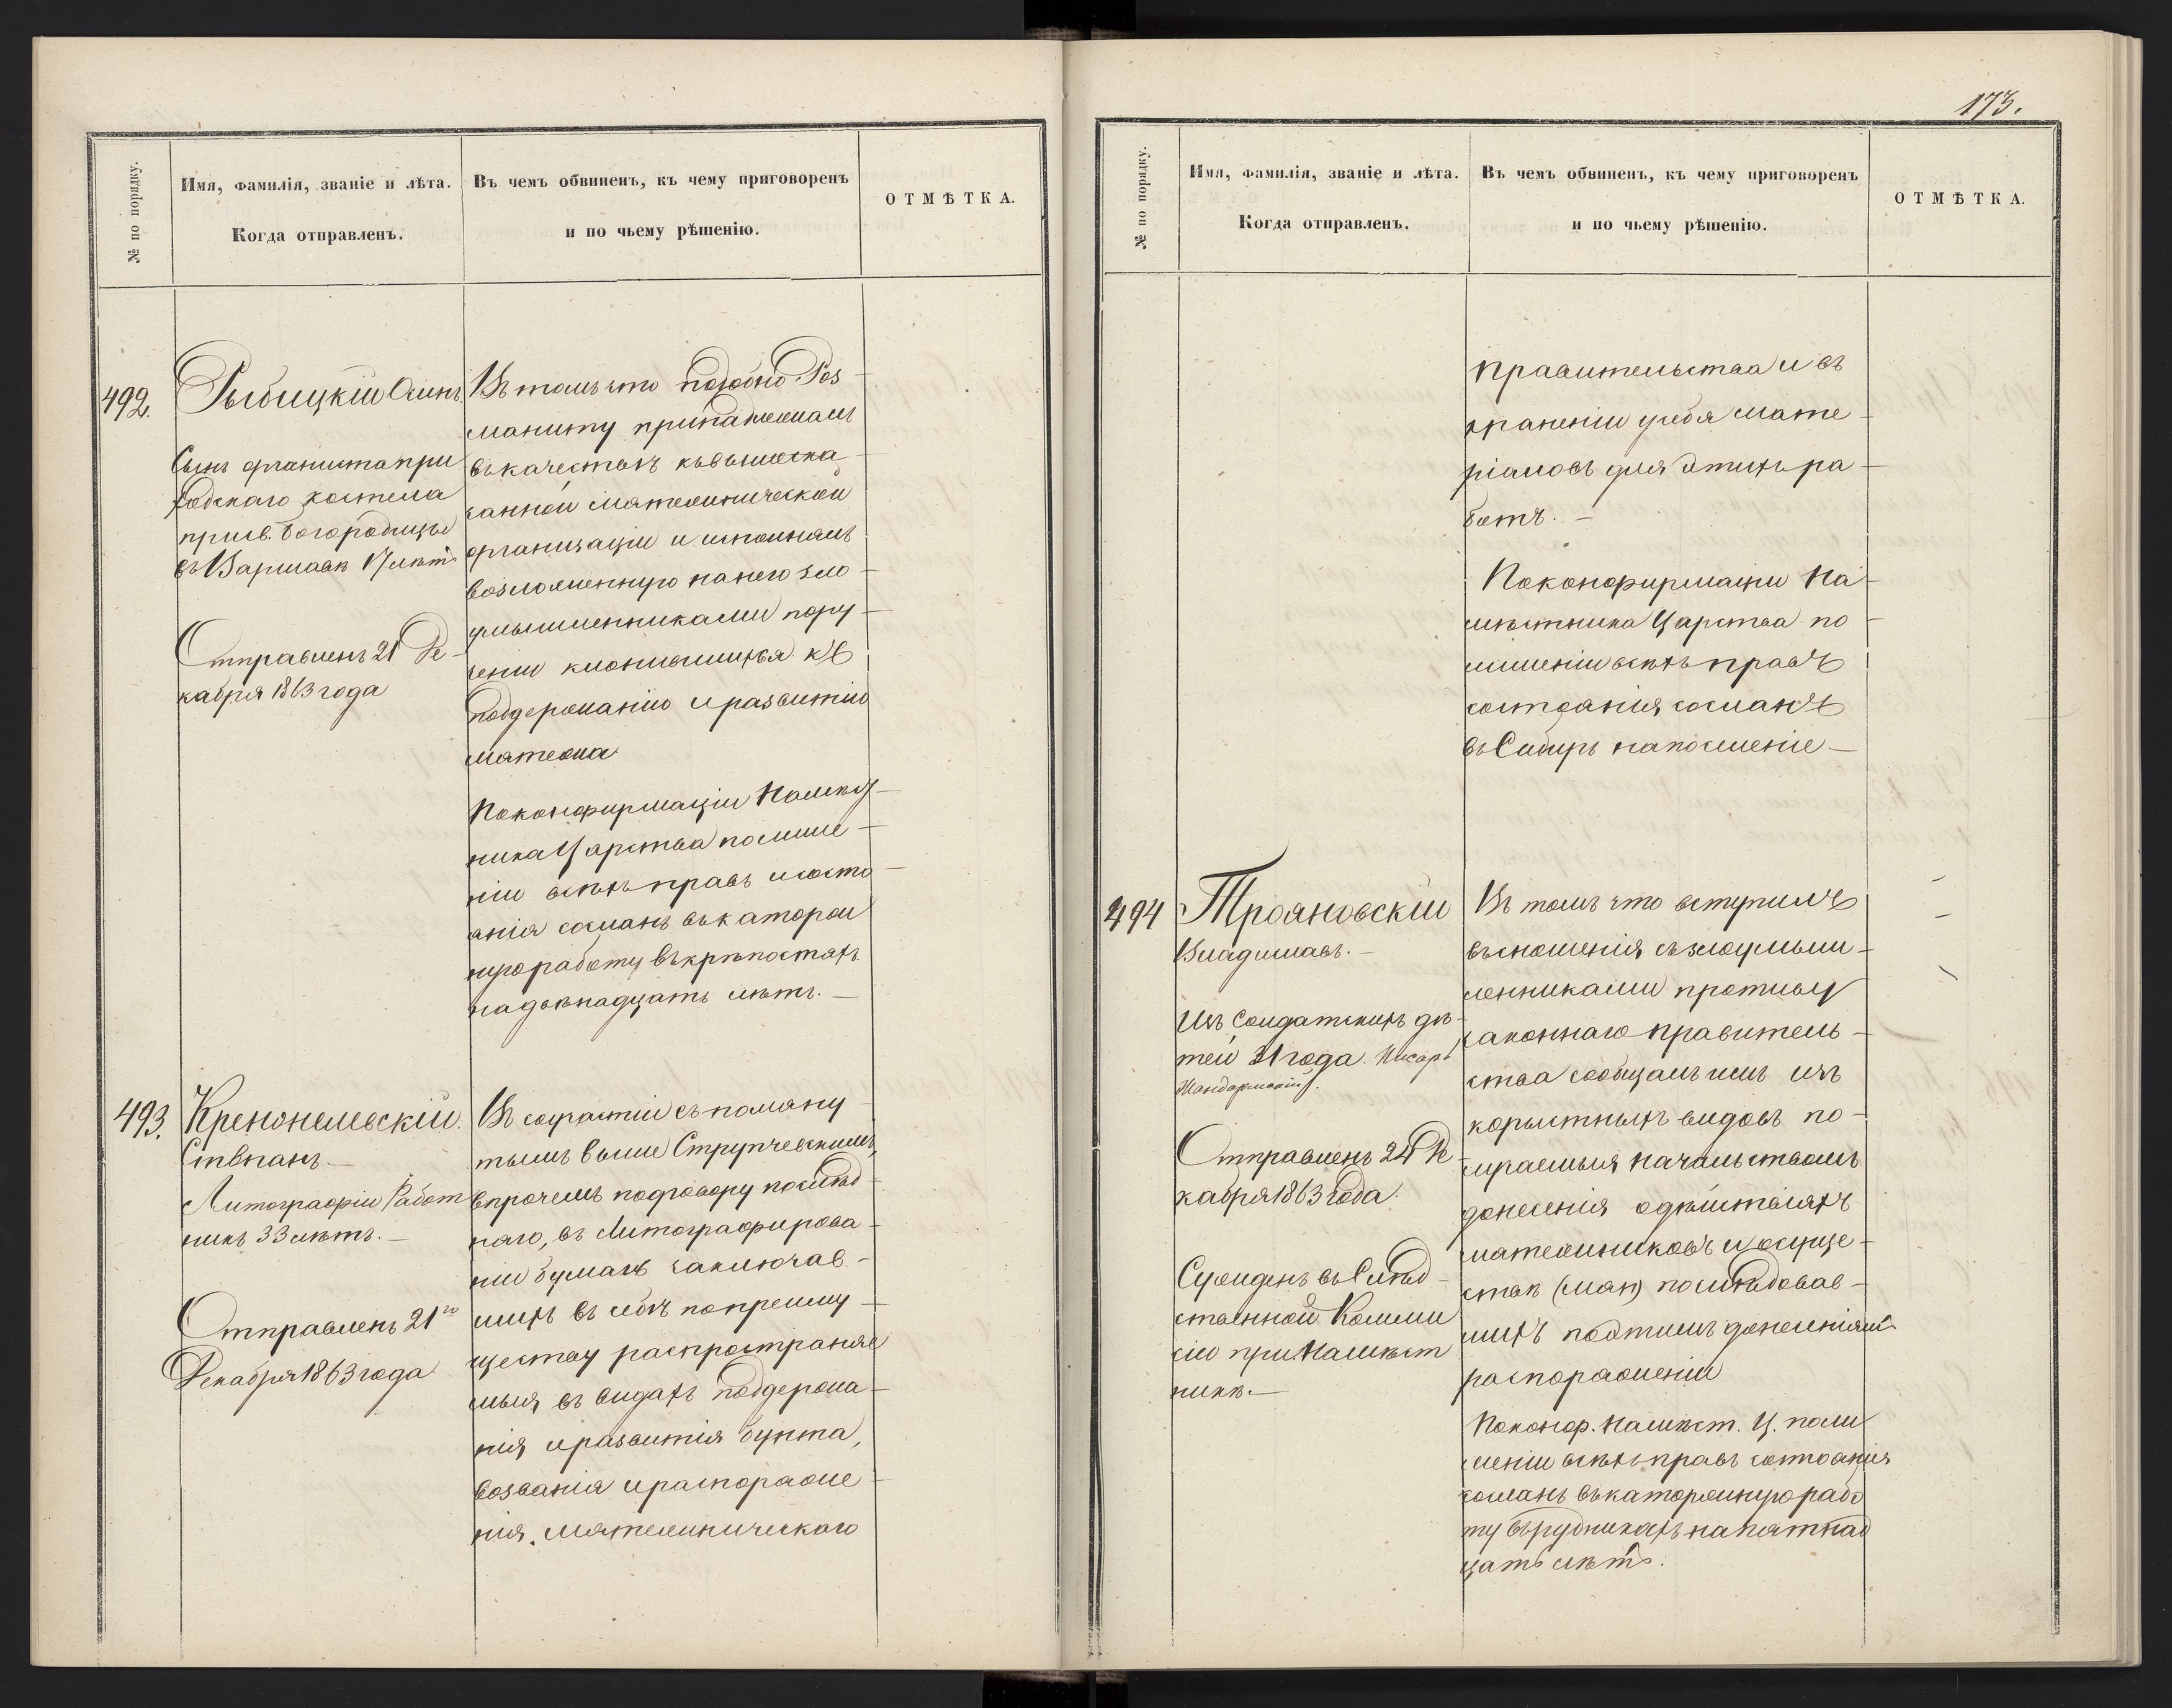 № по порядку.
Имя, фамилія, званіе и лѣта.
Когда отправленъ.
Въ чемъ обвиненъ, къ чему приговоренъ
и по чьему рѣшенію.
ОТМѢТКА.
492.
Рыбицкій Осипъ
Сынъ органиста при
ходскаго костела
пресв. Богородицы
въ Варшавѣ 17 лѣтъ
Отправленъ 21 Де
кабря 1863 года
Въ томъ что подобно Роз
маниту принадлежалъ
въ качествѣ къ вышеска
занной мятежнической
организаціи и исполнялъ
возложенную на него зло
умышленниками пору
ченіи клонившихся къ
поддержанію и развитію
мятежа
По конфирмаціи Намѣст
ника Царства по лише
ніи всѣхъ правъ и состо
янія сосланъ въ каторж
ную работу въ крѣпостяхъ
на двѣнадцать лѣтъ. —
493.
Степанъ —
Литографіи Работ
никъ 33 лѣтъ. —
Отправленъ 21го
Декабря 1863 года
Въ соучастіи съ помяну
тымъ выше Струпчевскимъ,
впрочемъ подговору послѣд
няго, въ литографирова
ніи бумагъ заключав
шихъ въ себѣ по преиму
ществу распространяе
мыя въ видахъ поддержа
нія и развитія бунта,
воззванія и распоряже
нія мятежническаго
173.
№ по порядку.
Имя, фамилія, званіе и лѣта.
Когда отправленъ.
Въ чемъ обвиненъ, къ чему приговоренъ
и по чьему рѣшенію.
ОТМѢТКА.
правительства и въ
храненіи у себя мате
ріаловъ для этихъ ра
ботъ. —
По конфирмаціи На
мѣстника Царства по
лишеніи всѣхъ правъ
состоянія сосланъ
въ Сибирь на поселеніе —
494
Трояновскій
Владиславъ. —
Изъ Солдатскихъ дѣ
тей 21 года. Писарь
Жандармскій.
Отправленъ 24 Де
кабря 1863 года.
Сужденъ въ Слѣд
ственной Коммис
сіи при Намѣст
никѣ. —
Въ томъ что вступилъ
въ сношенія съ злоумыш
ленниками противу
законнаго правитель
ства сообщалъ имъ изъ
корыстныхъ видовъ по
лучаемыя начальствомъ
донесенія о дѣйствіяхъ
мятежниковъ и о суще
ствѣ (ман) послѣдовав
шихъ по этимъ донесеніямъ
распоряженіи
По конф. Намѣст. Ц. по ли
шеніи всѣхъ правъ состоянія
сосланъ въ каторжную рабо
ту въ рудникахъ на пятнад
цать лѣтъ.